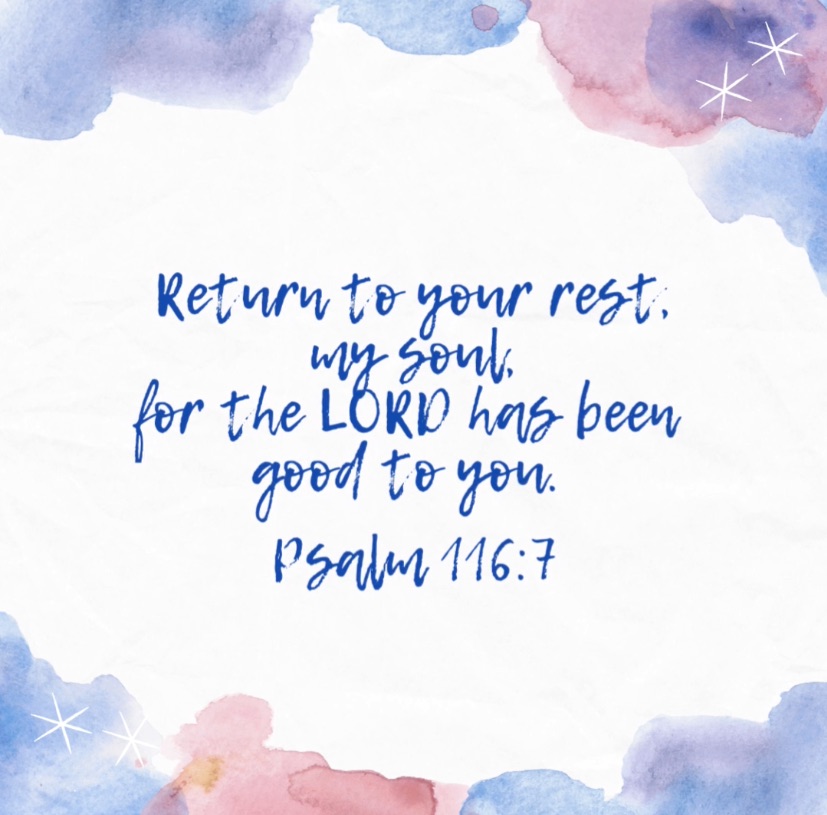 Return to your rest,
my soul,
for the LORD has been
good to you.
Psalm 116:7